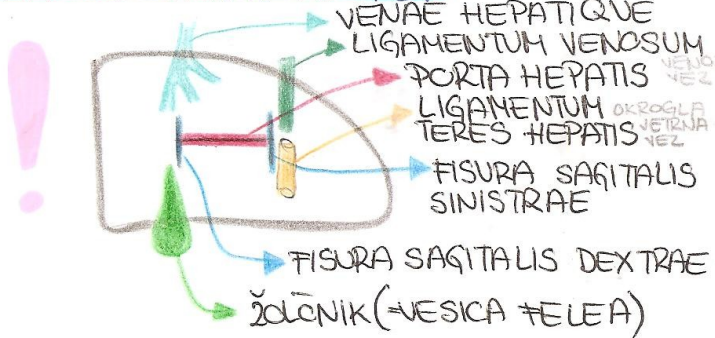 VENAE HEPATIQUE
LIGAMENTUM VENOSUM
VENO
VEZ
PORTA HEPATIS
LIGAMENTUM
TERES HEPATIS
OKROGLA
JETRNA
VEZ
FISURA SAGITALIS
SINISTRAE
FISURA SAGITALIS DEXTRAE
ŽOLČNIK (=VESICA FELEA)